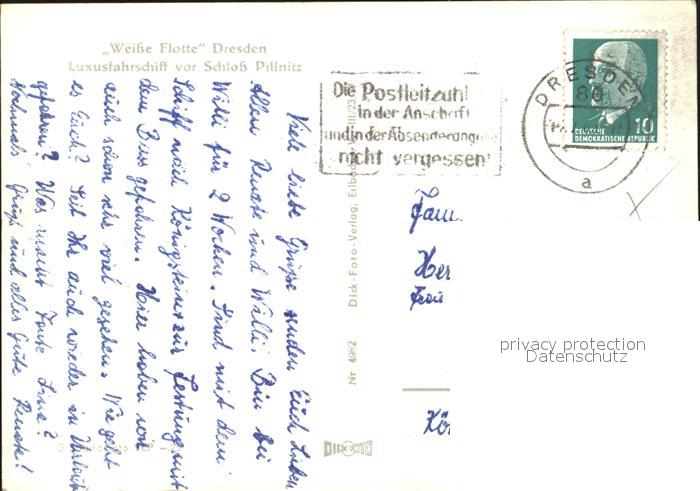 „Weiße Flotte“ Dresden
Luxusfahrschiff vor Schloß Pillnitz
Viele liebe Grüße senden Euch Lieben
Allen Renate und Willi. Bin bei
Willi für 2 Wochen. Sind mit dem
Schiff nach Königstein zur Festung mit
dem Bus gefahren. Hier haben wir
auch schon sehr viel gesehen. Wie geht
es Euch? Seit Ihr auch wieder in Urlaub
gefahren? Was macht Tante Lina?
Nochmals Gruß und alles Gute Renate!
Die Postleitzahl
in der Anschrift
und in der Absenderangabe
nicht vergessen!
DRESDEN
80
a
10
DEUTSCHE
DEMOKRATISCHE REPUBLIK
Nr 4982 Dick-Foto-Verlag, Erlb
III/23
DICK
Fam
Her
Frau
Kö
privacy protection
Datenschutz